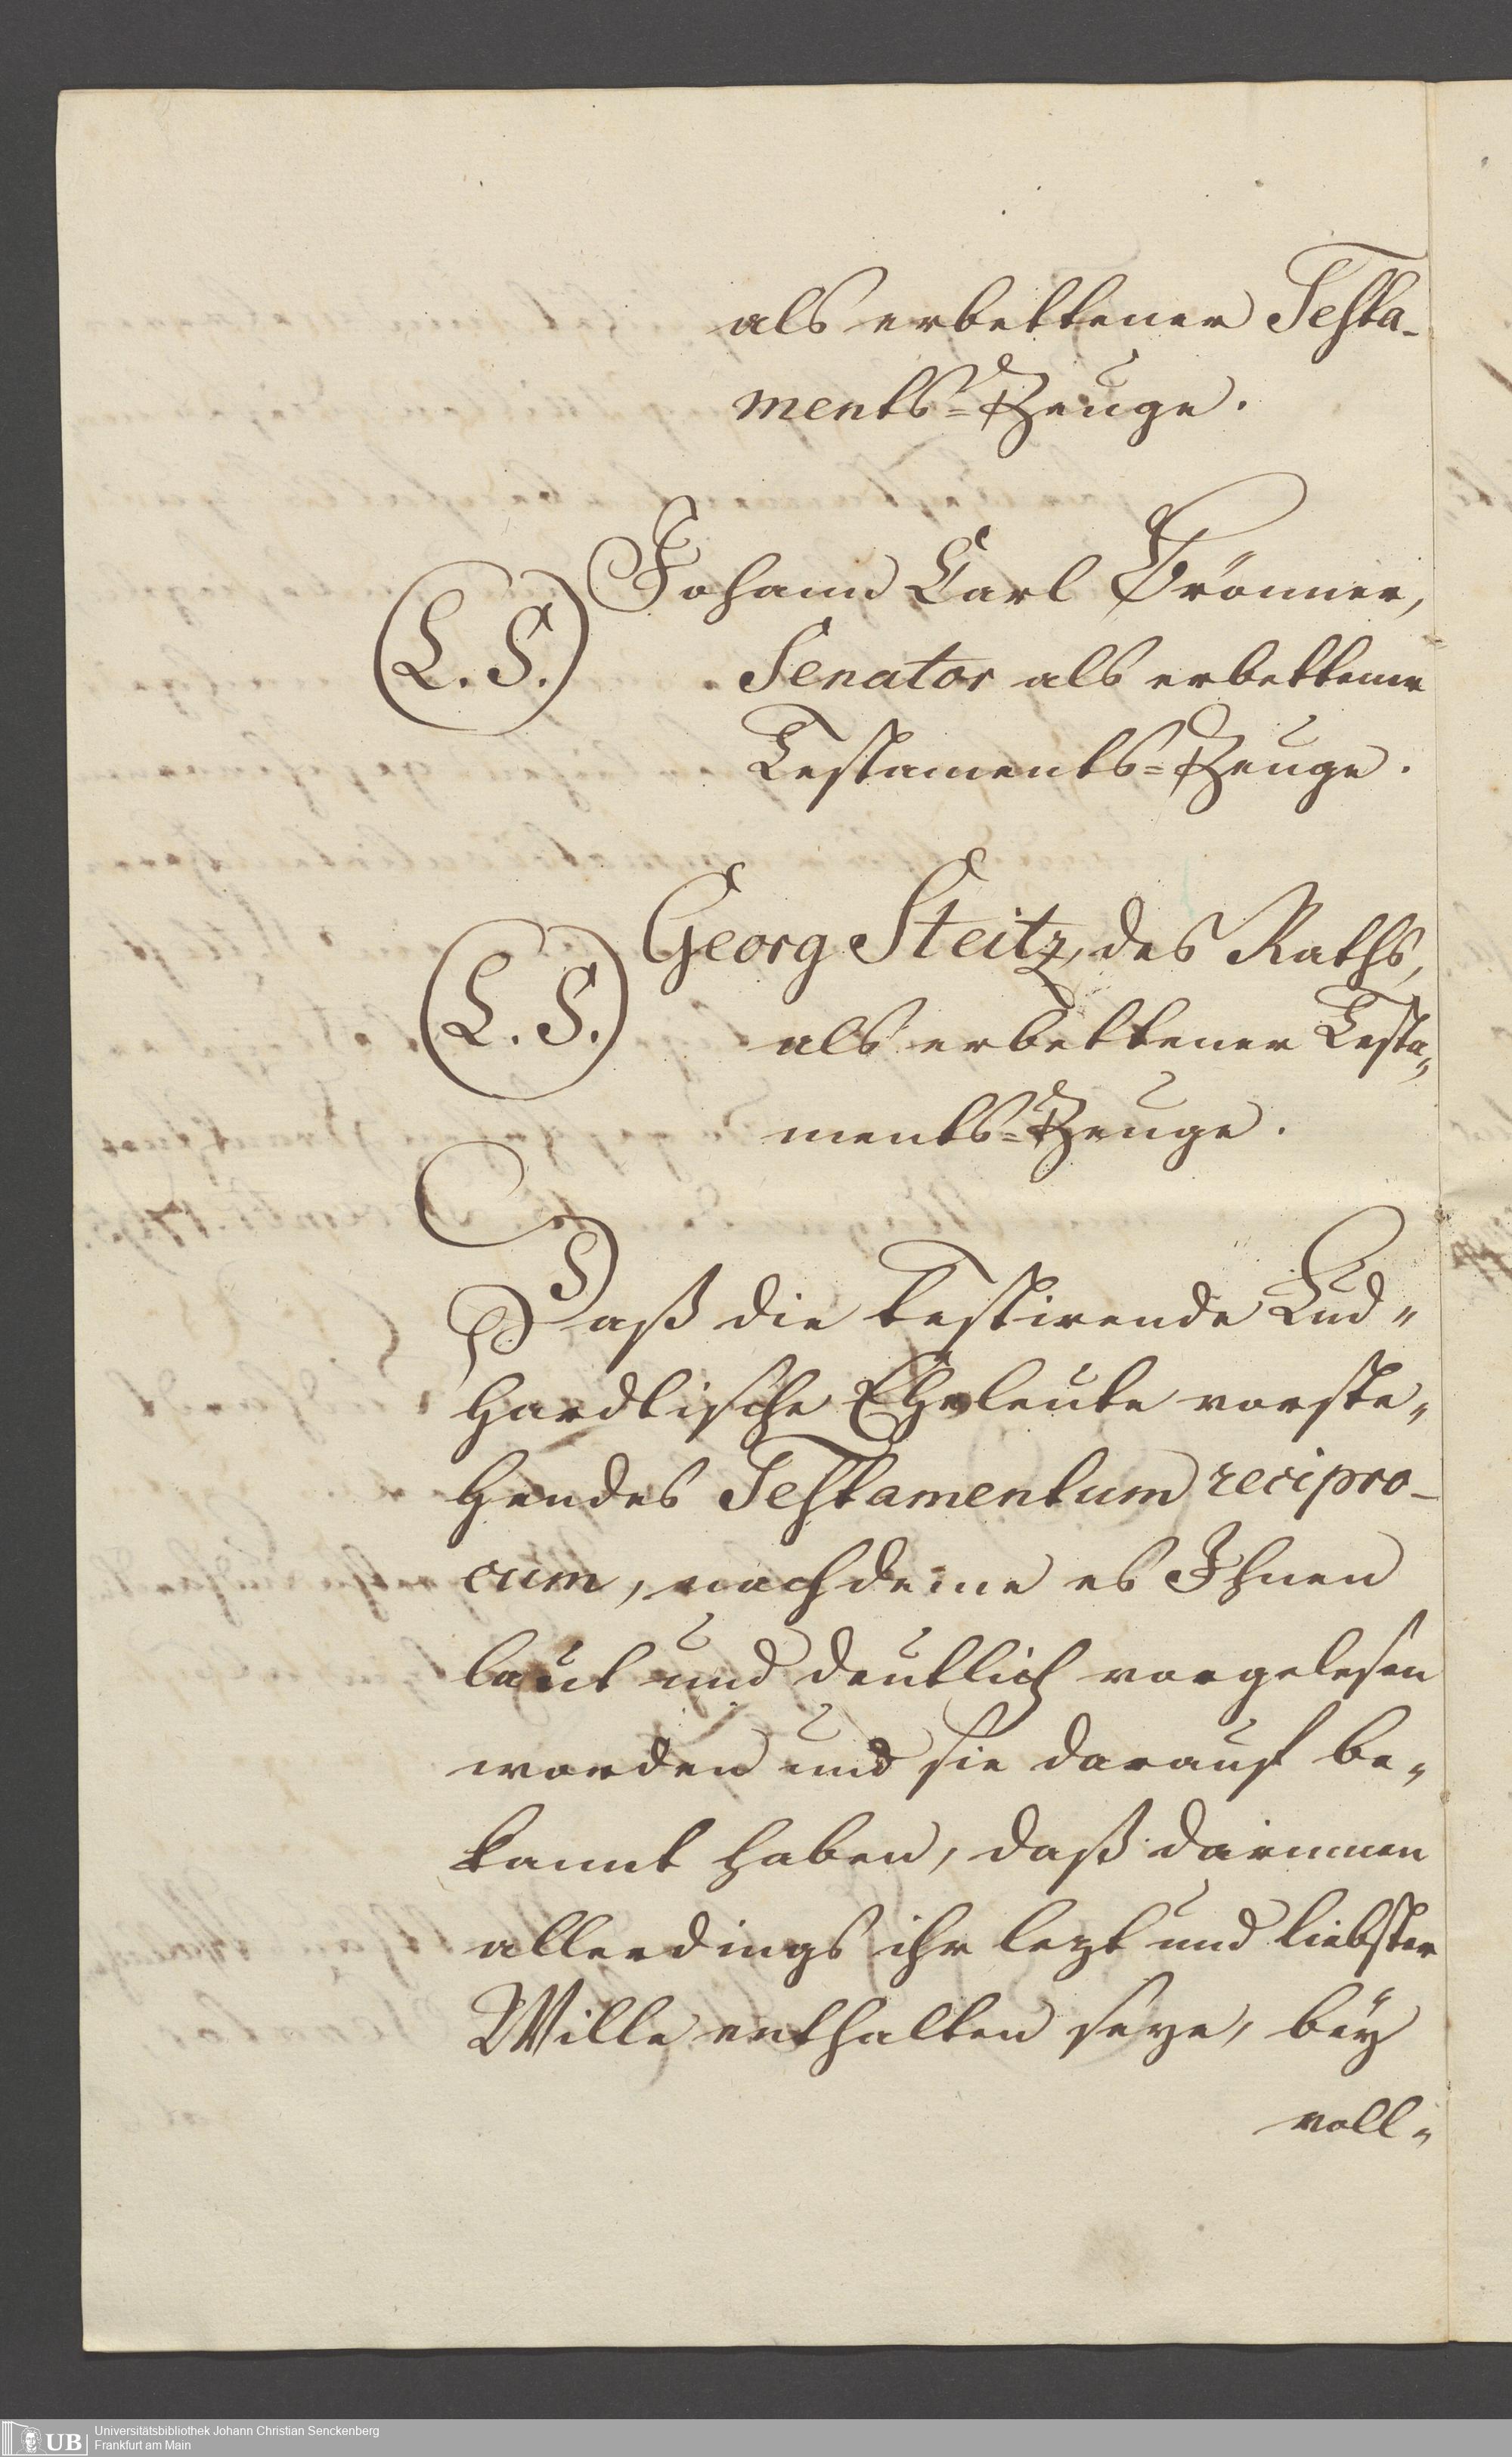 als erbettener Testa-
ments=Zeuge.
Johann Carl Brönner,
(L. S.)
Senator als erbettener
Testaments=Zeuge.
Georg Steitz, des Raths,
(L. S.)
als erbettener Testa„
ments=Zeuge.
Daß die testirende Lind„
hardtische Eheleute vorste„
hendes Testamentum recipro-
cum, nachdeme es Ihnen
laut und deutlich vorgelesen
worden und sie darauf be„
kannt haben, daß darinnen
allerdings ihr lezt und liebster
Wille enthalten seye, bey
voll„
UB
Universitätsbibliothek Johann Christian Senckenberg
Frankfurt am Main